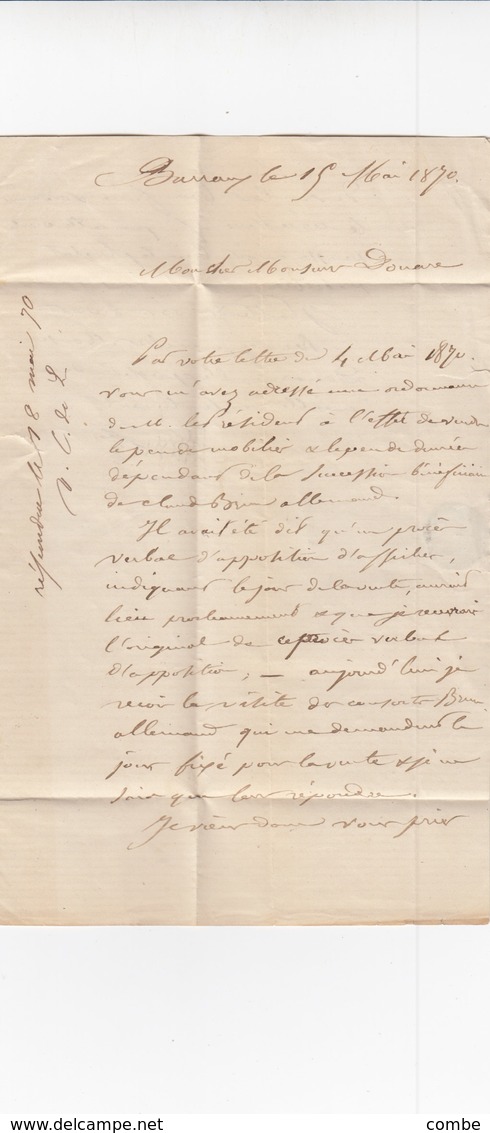 Barraux le 15 Mai 1870.
Mon cher Monsieur Douare
Par votre lettre du 4 Mai 1870.
vous m'avez adressé une ordonnance
de M. le Président à l'effet de vendre
le peu de mobilier & le peu de denrée
dépendans de la succession bénéficiaire
de Claude Brun allemand.
Il avait été dit qu'un procès
verbal d'apposition d'affiches,
indiquant le jour de la vente, aurait
lieu prochainement & que je recevrais
l'original de ce procès verbal
d'apposition, — aujourd'hui je
reçois la visite des consorts Brun
allemand qui me demandent le
jour fixé pour la vente & je ne
sais que leur répondre.
Je viens donc vous prier
répondu le 18 mai 70
V. C. de L.
delcampe.net
combe